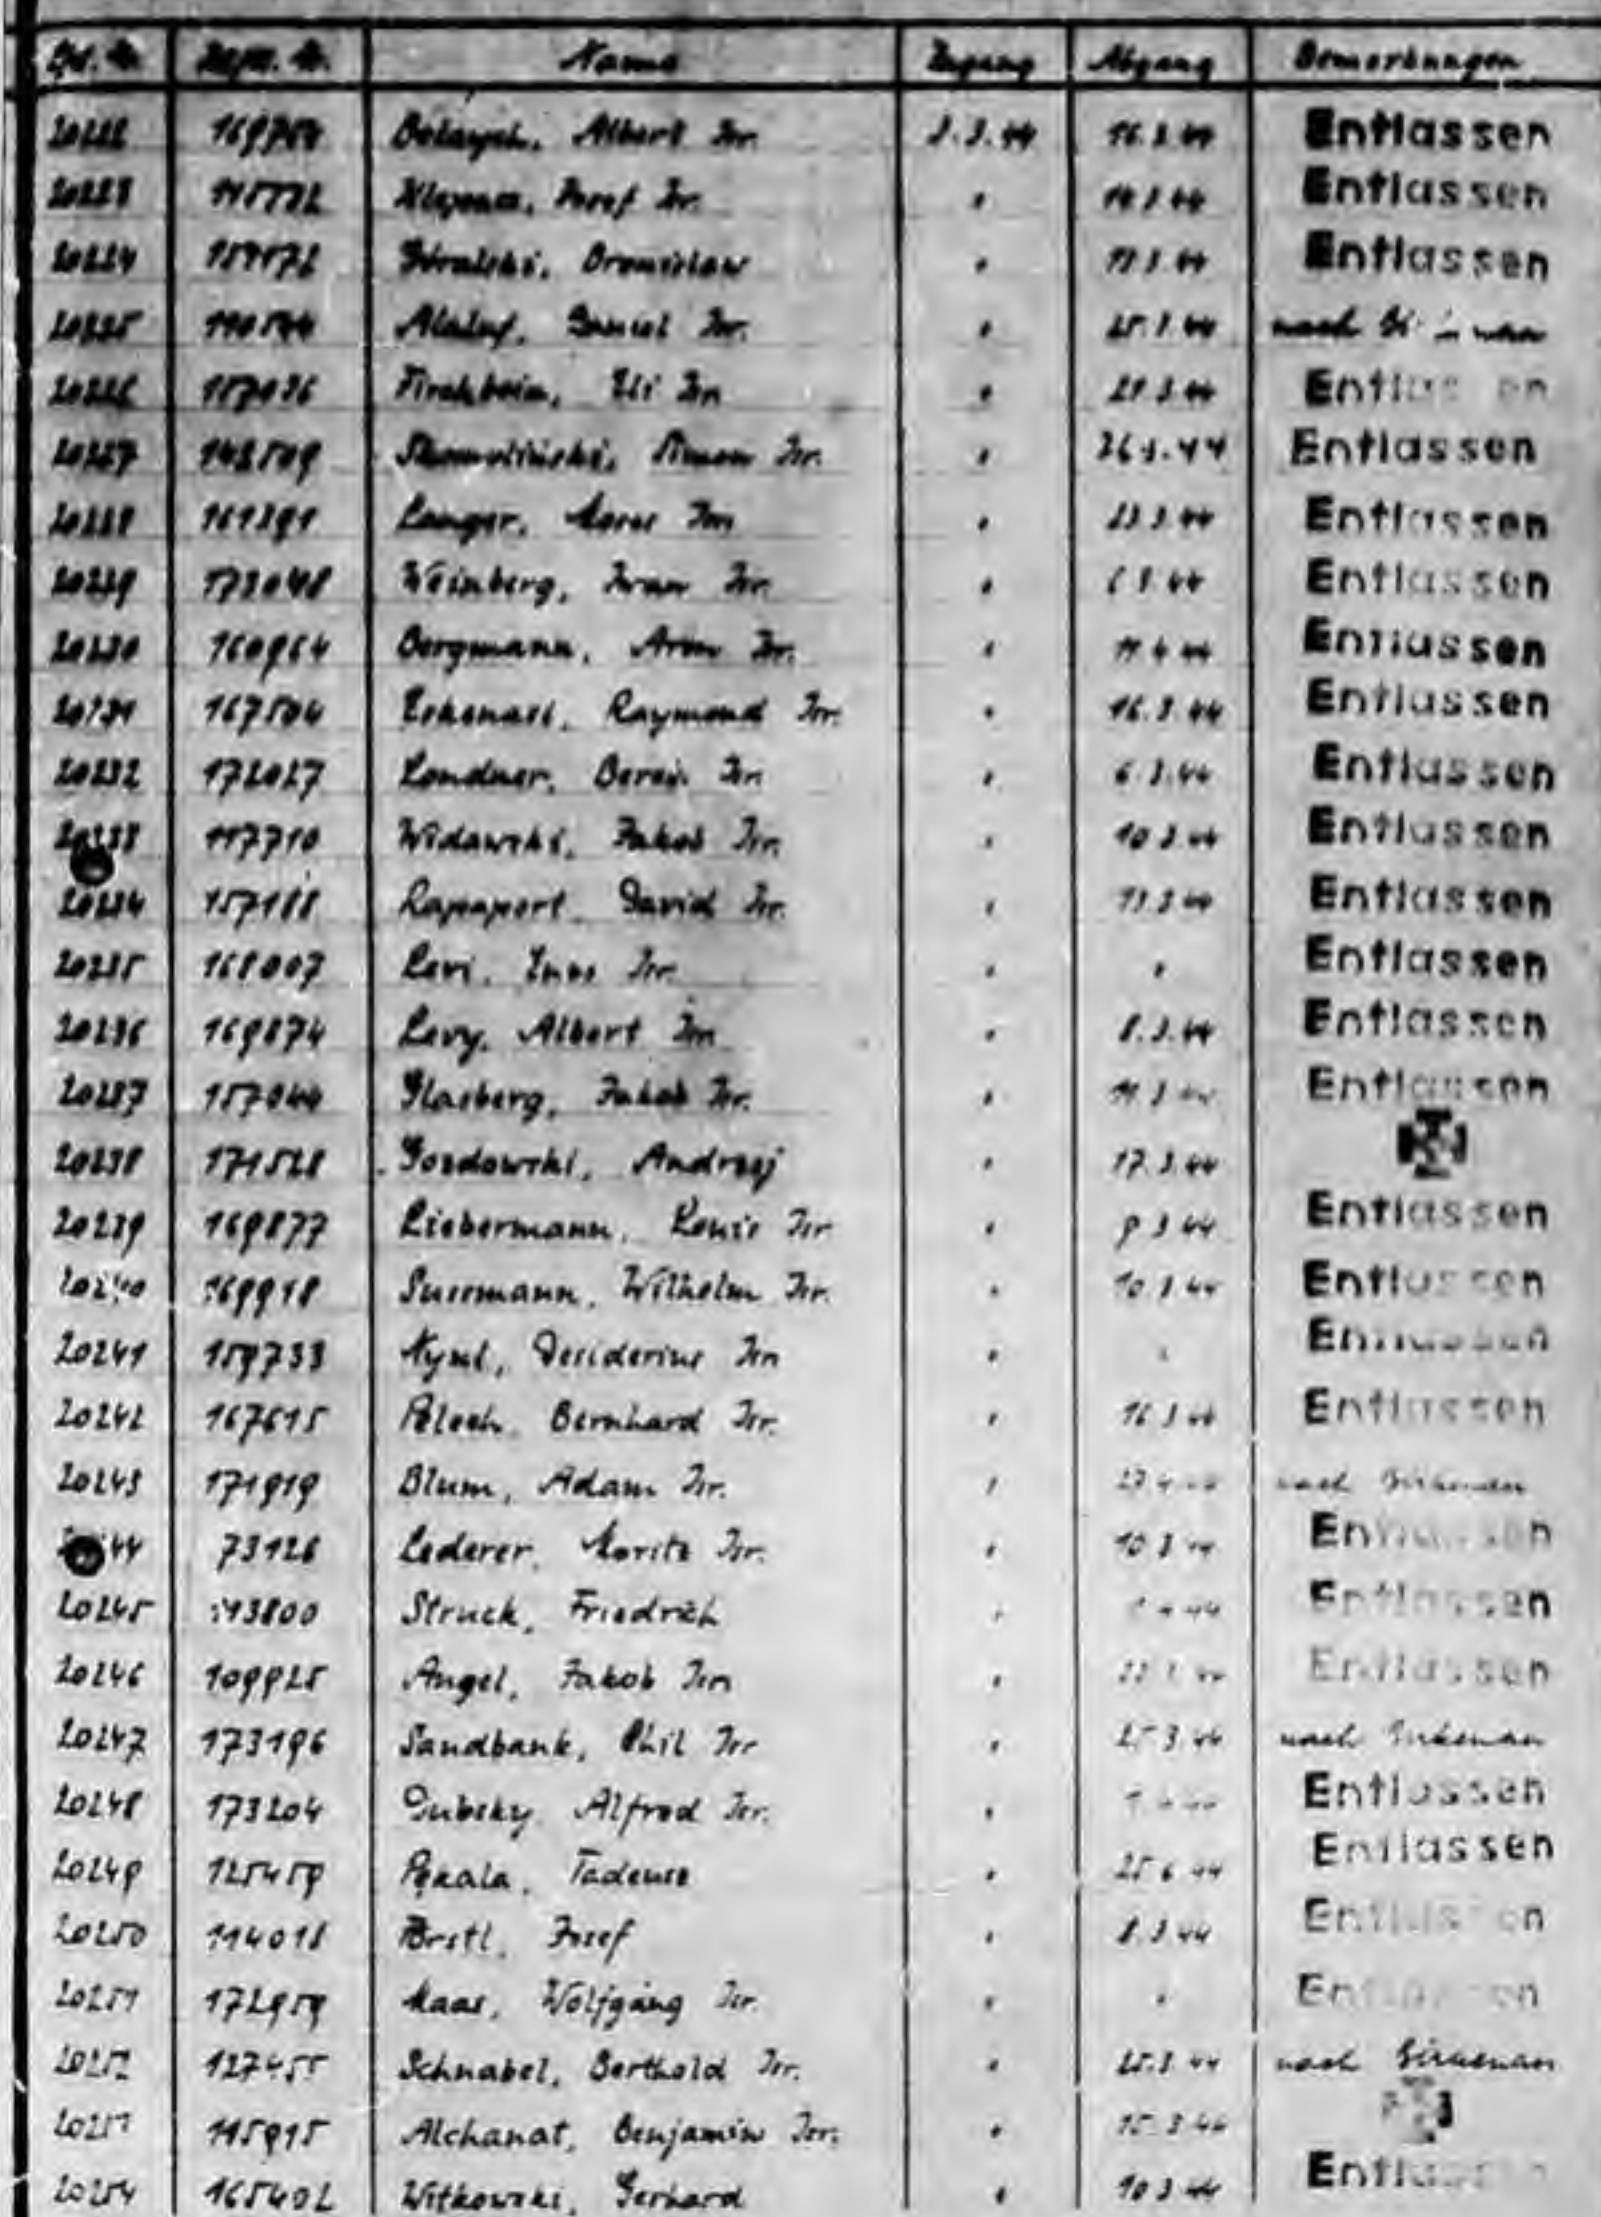 Lfd. Nr. Name Zugang Abgang Bemerkungen
20222 Albert Isr. 3.3.44 16.3.44 Entlassen
20223 Josef Isr. " 14.3.44 Entlassen
20224 Góralski, Bronislaw " Entlassen
20225 Alaluf, Daniel Isr. " 25.3.44 nach
20226 Eli Isr. " Entlassen
20227 142509 Simon Isr. " 26.3.44 Entlassen
20228 161391 Langer, Isr. " 23.3.44 Entlassen
20229 173048 Weinberg, Iwan Isr. " Entlassen
20230 160964 Bergmann, Aron Isr. " 11.4.44 Entlassen
20231 167504 Eskenasi, Raymond Isr. " 16.3.44 Entlassen
20232 172027 Londner, Isr. " 6.3.44 Entlassen
20233 117710 Widawski, Jakob Isr. " 10.3.44 Entlassen
20234 157188 Rapaport David Isr. " 13.3.44 Entlassen
20235 168007 Levi, Isr. " " Entlassen
20236 169874 Levy, Albert Isr. " 8.3.44 Entlassen
20237 157044 Glasberg, Jakob Isr. " 11.3.44 Entlassen
20238 171528 Gozdowski, Andrzej " 17.3.44
20239 169877 Liebermann, Louis Isr. " 9.3.44 Entlassen
20240 169918 Sussmann, Wilhelm Isr. " 10.3.44 Entlassen
20241 159733 Desiderius Isr. " " Entlassen
20242 167615 Bernhard Isr. " 16.3.44 Entlassen
20243 171919 Blum, Adam Isr. " nach Birkenau
44 73126 Lederer, Moritz Isr. " 10.3.44 Entlassen
20245 113800 Struck, Friedrich " Entlassen
20246 109925 Angel, Jakob Isr. " Entlassen
20247 173196 Sandbank, Phil Isr. " 25.3.44 nach Birkenau
20248 173204 Dubsky Alfred Isr. " Entlassen
20249 125459 Pękala, Tadeusz " 25.6.44 Entlassen
20250 114018 Josef " 8.3.44 Entlassen
20251 172959 Maas, Wolfgang Isr. " " Entlassen
20252 127455 Schnabel, Berthold Isr. " 25.3.44 nach Birkenau
20253 115915 Alchanat, Benjamin Isr. " 15.3.44
20254 165402 Witkowski, Gerhard " 10.3.44 Entlassen